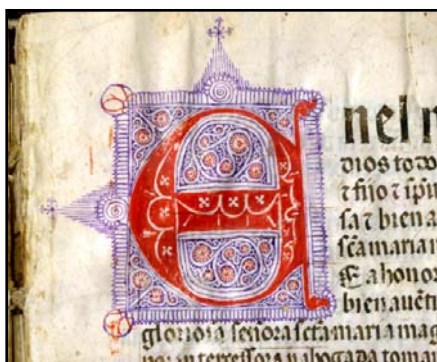 E nel n
dios todo
⁊ fijo ⁊ spũ
sa ⁊ bien a
scã maria m
E a honor
bien auẽt
gloriosa señora scta maria mag